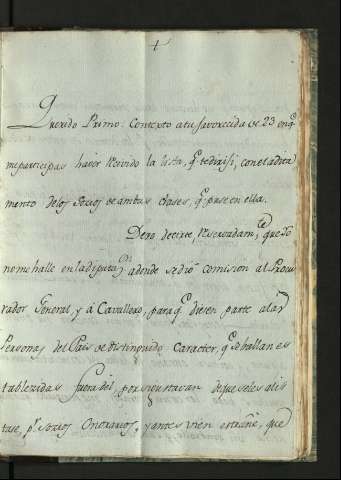 +
Querido Primo: Contexto a tu favorecida de 23 en q.e
me participas haver recivido la lista, q.e te dirixi, con el adita
mento de los Socios de ambas clases, q.e puse en ella.
Devo decirte, reservadam.te que Yo
no me halle en la Diputa.on adonde se dió comision al Procu
rador General, y á Cavallero, para q.e diesen parte a las
Personas del Pais de distinguido Caracter, q.e se hallan es
tablezidas fuera del, por si gustavan de que se les alis
tase, p.r Socios Onorarios, y antes vien estrañé, que